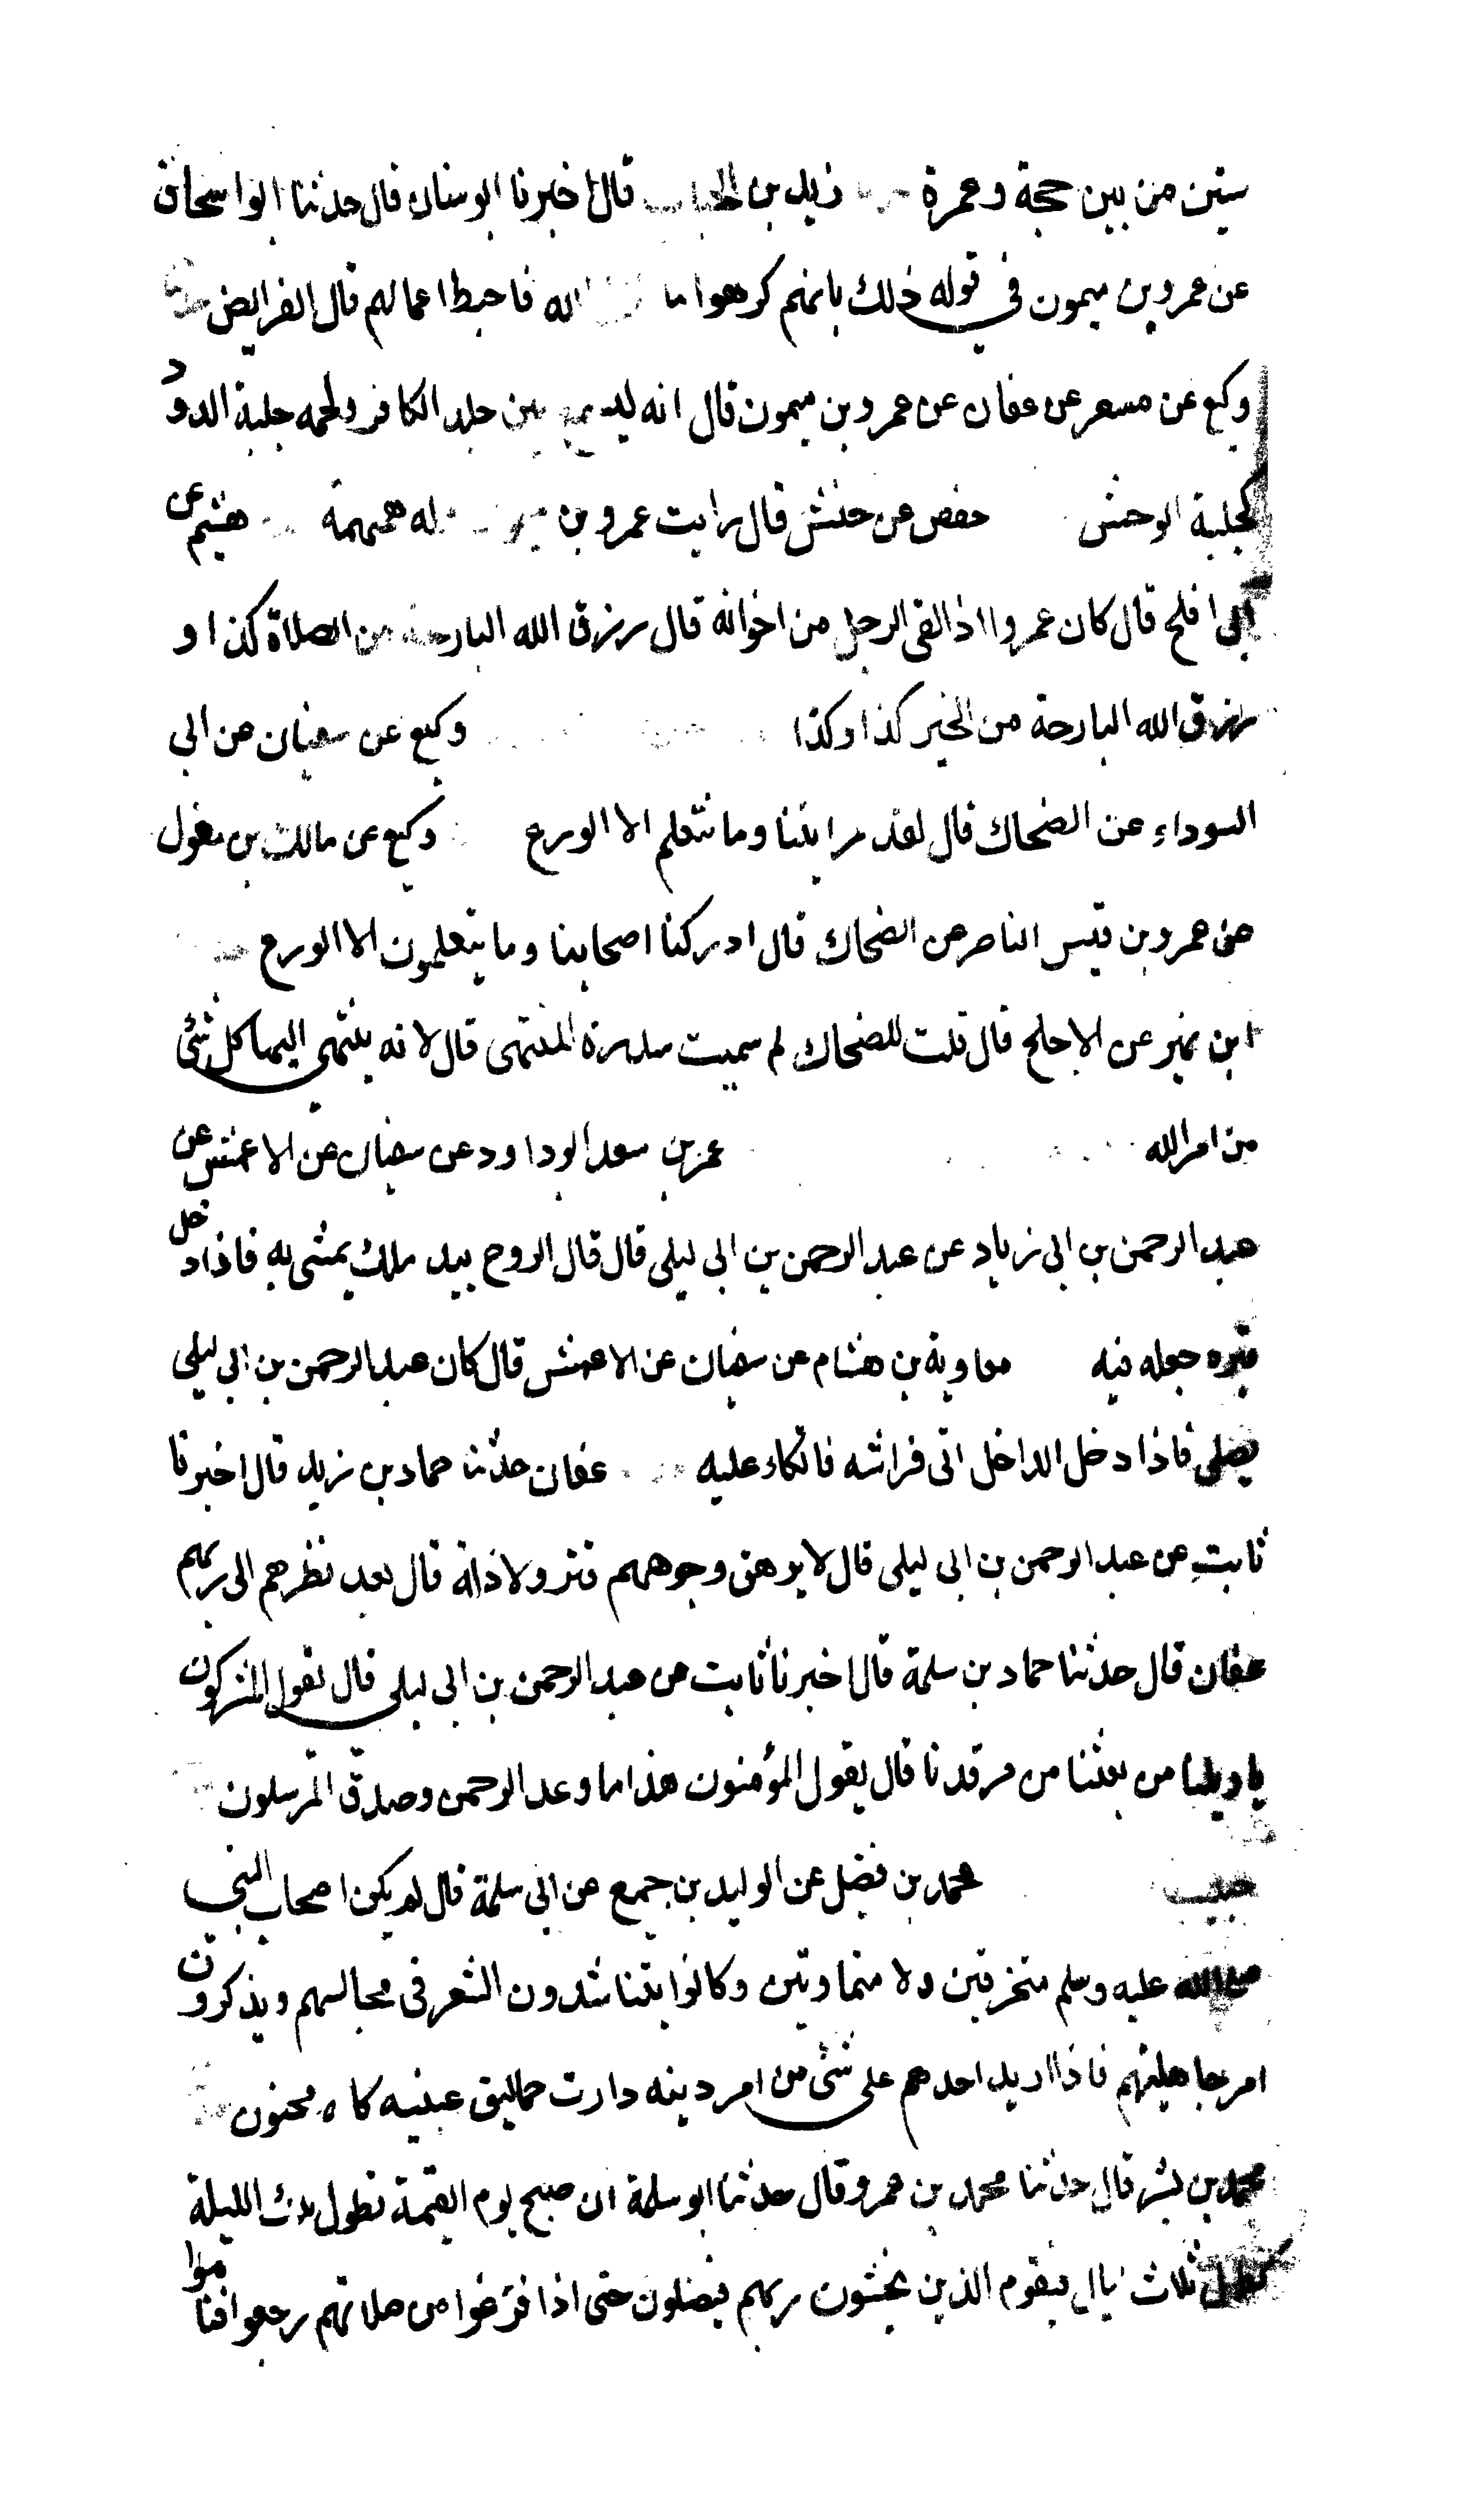 ستين من بين حجة وعمرة زيد بن الحباب قال اخبرنا ابو سنان قال حدثنا ابو اسحاق
عن عمرو بن ميمون في قوله ذلك بانهم كرهوا ما الله فاحبط اعمالهم قال الفرايض
وكيع عن مسعر عن عفان عن عمرو بن ميمون قال انه ليسمع بين جلد الكافر ولحمه جلبة الدود
كجلبة الوحش حفص عن حنش قال رايت عمرو بن وله همهمة هشيم عن
ابى افلح قال كان عمروا اذا لقى الرجل من اخوانه قال رزق الله البارحة من الصلاة كذا و
رزق الله البارحة من الخير كذا وكذا وكيع عن سفيان عن ابى
السوداء عن الضحاك قال لقد رايتنا وما نتعلم الا الورع وكيع عن مالك بن مغول
عن عمرو بن قيس الناصر عن الضحاك قال ادركنا اصحابنا وما يتعلمون الا الورع
ابن نمير عن الاجلح قال قلت للضحاك لم سميت سدرة المنتهى قال لانه ينتهى اليها كل شئ
من امر الله عمر بن سعد ابو داود عن سفيان عن الاعمش عن
عبد الرحمن بن ابى زياد عن عبد الرحمن بن ابى ليلى قال قال الروح بيد ملك يمشى به فاذا دخل
قبره جعله فيه معاوية بن هشام عن سفيان عن الاعمش قال كان عبد الرحمن بن ابى ليلى
يصلى فاذا دخل الداخل اتى فراشه فاتكاء عليه عفان حدثنا حماد بن زيد قال اخبرنا
ثابت عن عبد الرحمن بن ابى ليلى قال لا يرهق وجوههم قتر ولا ذلة قال بعد نظرهم الى ربهم
عفان قال حدثنا حماد بن سلمة قال اخبرنا ثابت عن عبد الرحمن بن ابى ليلى قال تقول المشركون
يا ويلنا من بعثنا من مرقدنا قال يقول المؤمنون هذا ما وعد الرحمن وصدق المرسلون
محمد بن فضل عن الوليد بن جميع عن ابى سلمة قال لم يكن اصحاب النبي
صلى الله عليه وسلم متخرقين ولا متماوتين وكانوا يتناشدون الشعر فى مجالسهم ويذكرون
امر جاهليتهم فاذا اريد احدهم على شئ من امر دينه دارت حماليق عينيه كانه مجنون
محمد بن بشر قال حدثنا محمد بن عمرو قال حدثنا ابو سلمة ان صبح يوم القيمة تطول تلك الليلة
كطول ثلاث ليالي فيقوم الذين يخشون ربهم فيصلون حتى اذا فرغوا من صلاتهم رجعوا فناموا